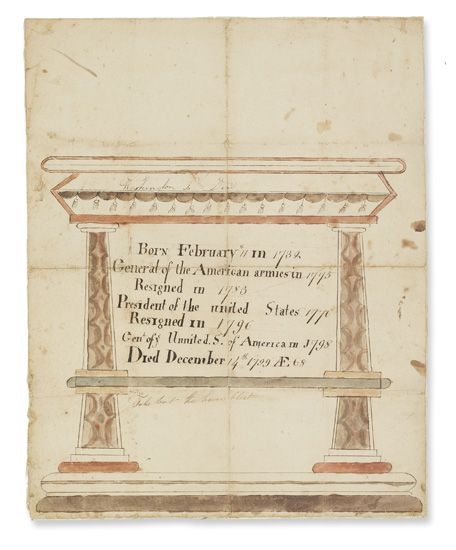 Washington
Born February 11 in 1732.
General of the American armies in 1775
Resigned in 1783
President of the united States
Resigned in 1796
Genl of ye Unnited. S. of America in 1798
Died December 14th 1799 Æ 68
Take but the